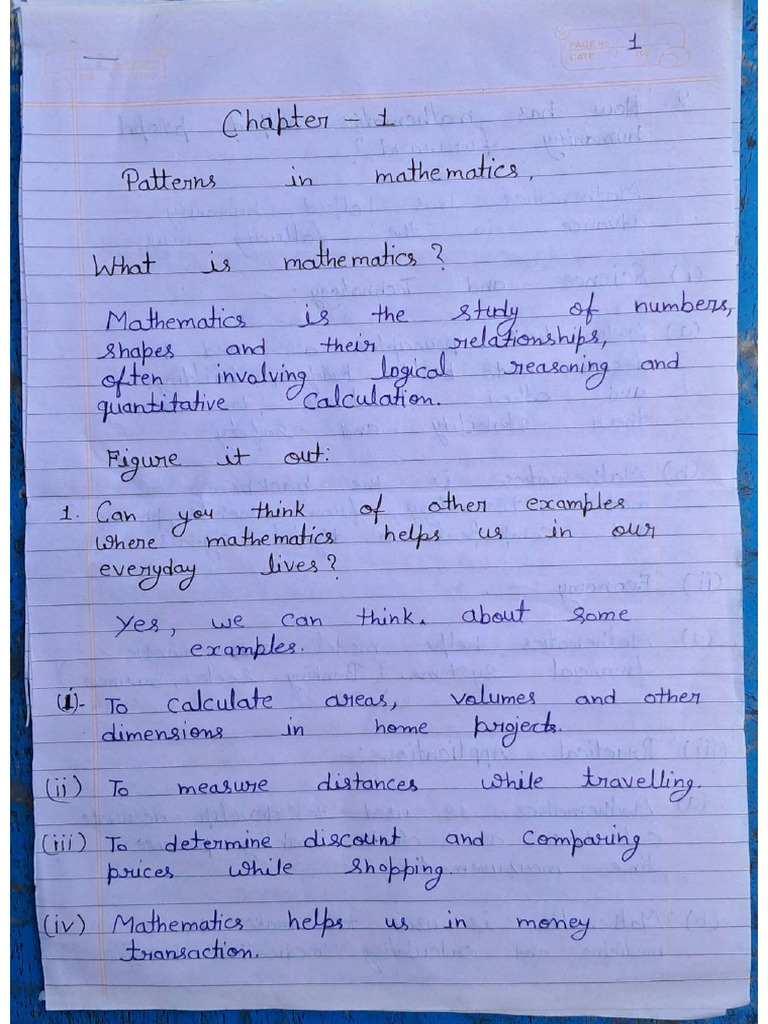 PAGE NO. 1
DATE
Chapter - 1
Patterns in mathematics.
What is mathematics?
Mathematics is the study of numbers,
shapes and their relationships,
often involving logical reasoning and
quantitative calculation.
Figure it out:
1. Can you think of other examples
where mathematics helps us in our
everyday lives?
Yes, we can think. about some
examples.
(i)- To calculate areas, volumes and other
dimensions in home projects.
(ii) To measure distances while travelling.
(iii) To determine discount and comparing
prices while shopping.
(iv) Mathematics helps us in money
transaction.